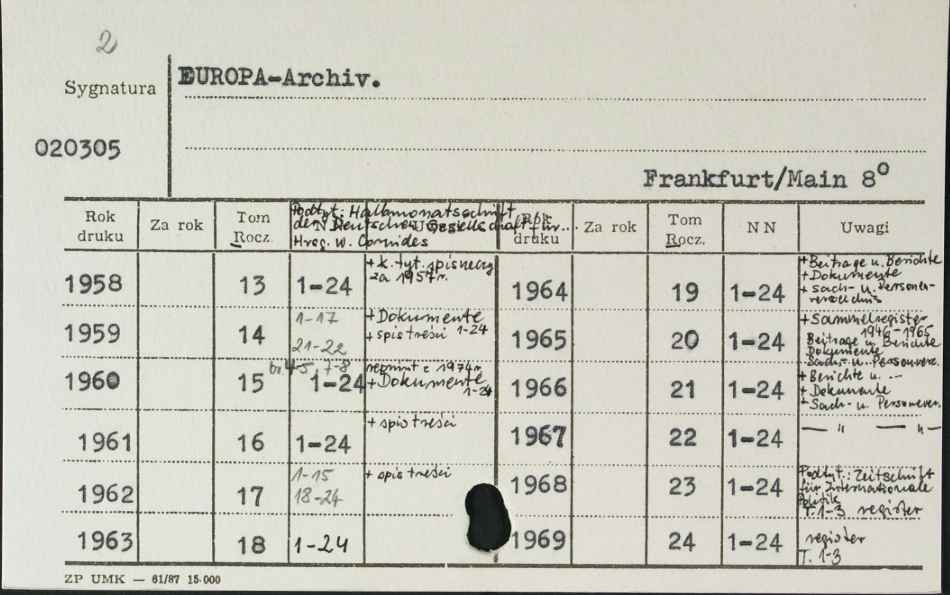 2
Sygnatura
EUROPA-Archiv.
020305
Frankfurt/Main 8°
Rok druku Za rok Tom Rocz. NN Uwagi Rok druku Za rok Tom Rocz. NN Uwagi
Podtyt.: Halbmonatsschrift
der Deutschen Gesellschaft für...
Hrsg. W. Cornides
1958 13 1-24 + k. tyt. spis rzeczy
za 1957 r.
1959 14 1-17
21-22 + Dokumente
+ spis treści 1-24
1960 15 br. 4-5, 7-8
1-24 reprint z 1974 r.
+ Dokumente
1-24
1961 16 1-24 + spis treści
1962 17 1-15
18-24 + spis treści
1963 18 1-24
1964 19 1-24 + Beitrage u. Berichte
+ Dokumente
+ Sach- u. Personen-
verzeichnis
1965 20 1-24 + Sammelregister
1946-1965
Beitrage u. Berichte
Dokumente
Sach- u. Personenverz.
1966 21 1-24 + Berichte u. --
+ Dokumente
+ Sach- u. Personenver.
1967 22 1-24 — " — — " —
1968 23 1-24 Podtyt.: Zeitschrift
für Internationale
Politik
T. 1-3 register
1969 24 1-24 register
T. 1-3
ZP UMK — 61/87 15.000